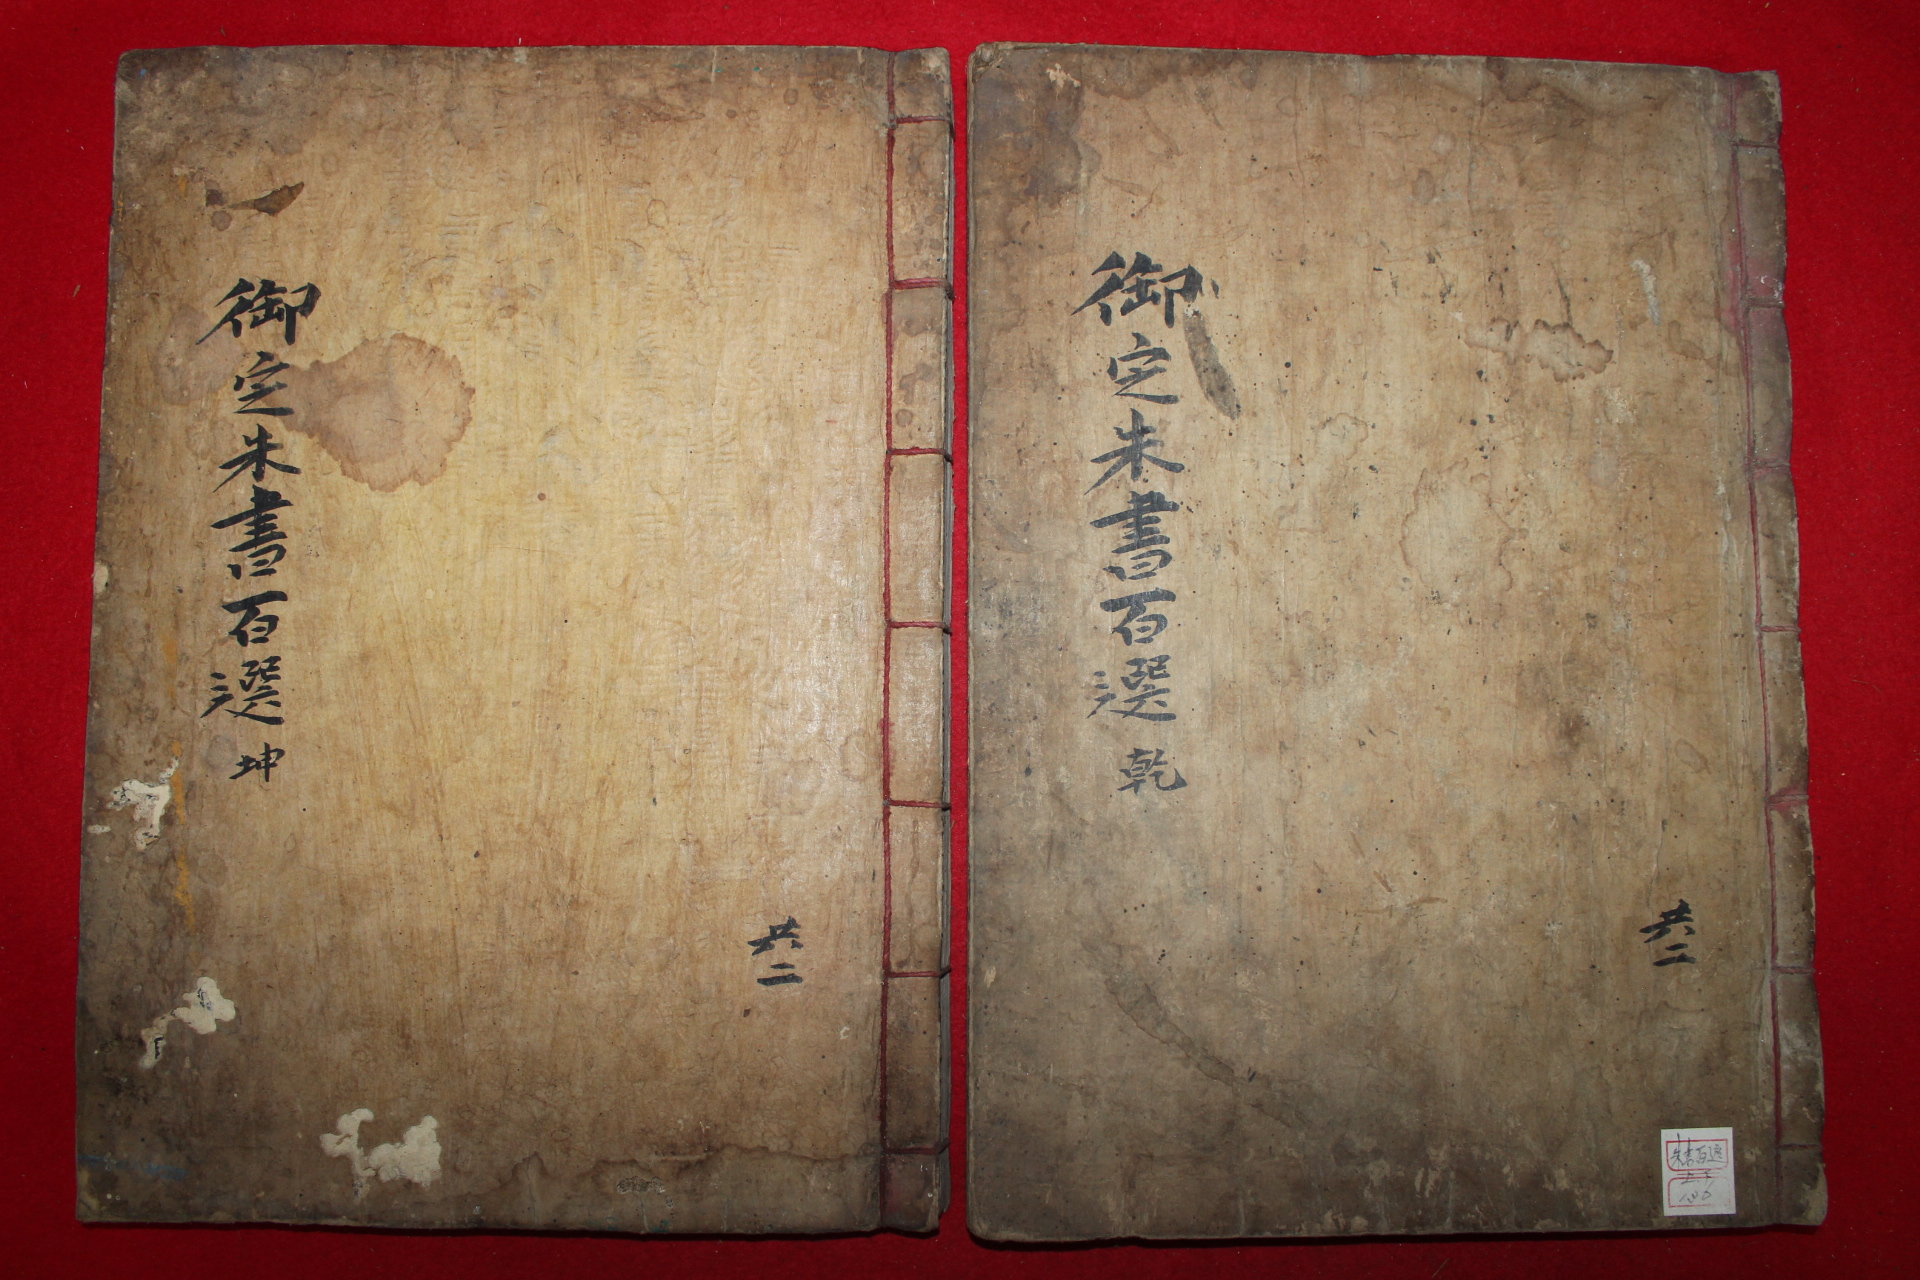 御定朱書百選 乾
共二
朱書百選
御定朱書百選 坤
共二